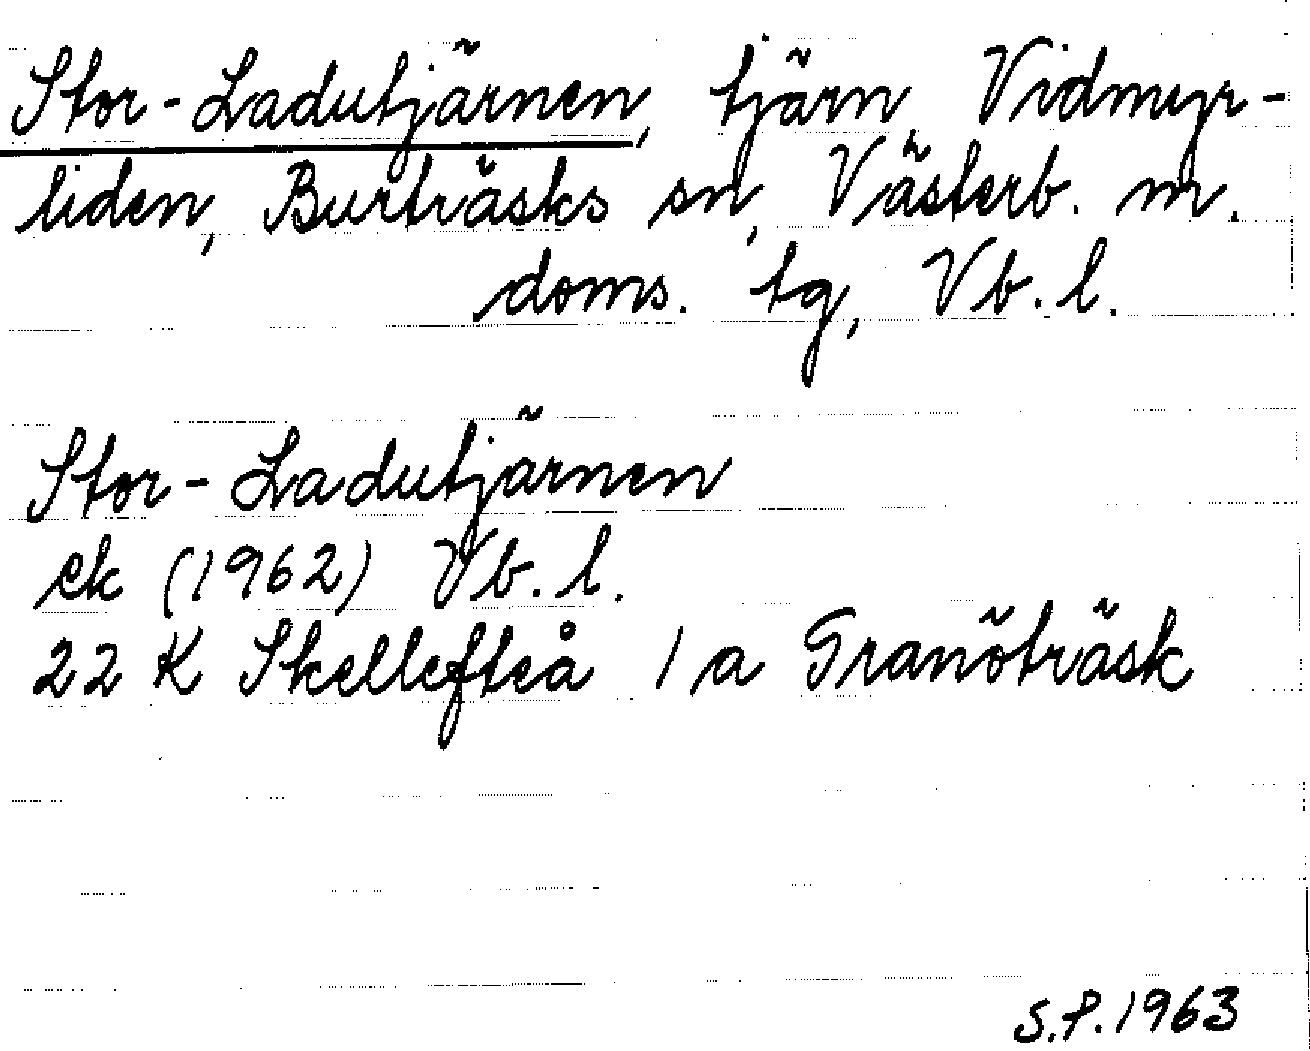 Stor-Ladutjärnen, tjärn Vidmyr-
liden, Burträsks sn, Västerb. m.
doms. tg, Vb. l.
Stor-Ladutjärnen
ek (1962) Vb. l.
22 K Skellefteå 1 a Granöträsk
S.P. 1963